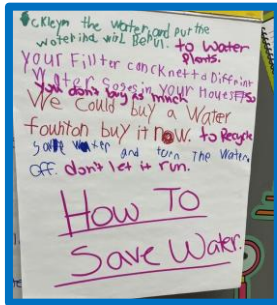 the water and put the
water ina
to water
plants.
your Fillter can cknett a Diffrint
Water in your House so
you don't buy as much
We Could buy a Water
fountion buy it now. to Recycle
Save water and turn The Water
OFF. don't let it run.
How To
Save Water.